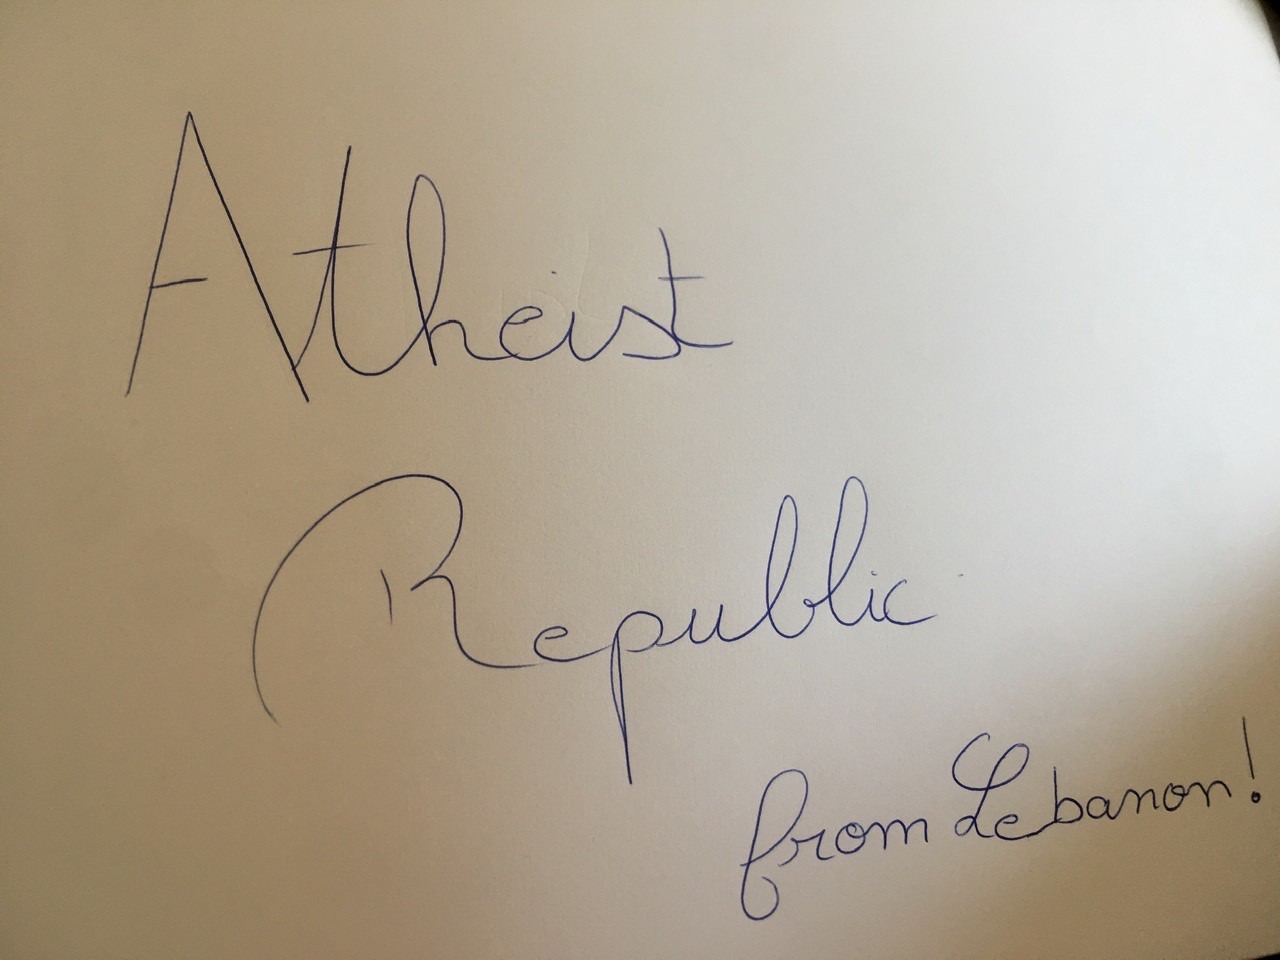 Atheist
Republic
from Lebanon!